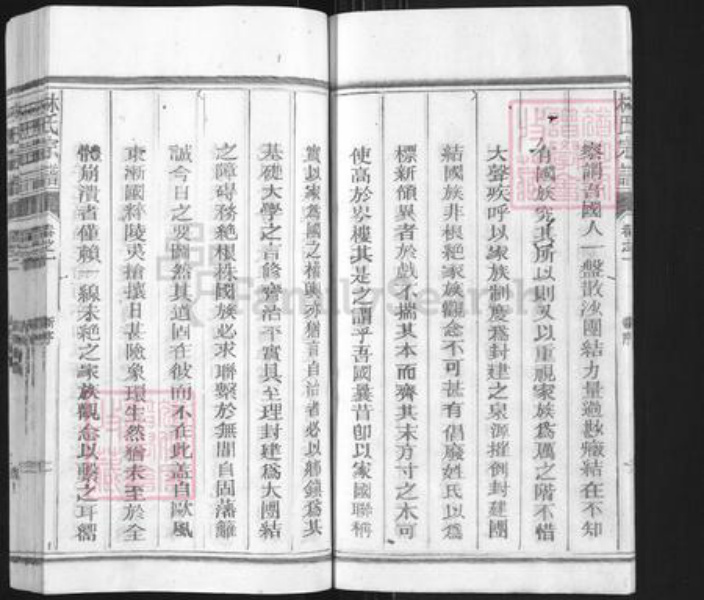 林氏宗譜
察謂吾國人一盤散沙團結力量過尠癥結在不知
有國族究其所以則又以重視家族為厲之階不惜
大聲疾呼以家族制度為封建之泉源摧倒封建團
結國族非根絕家族觀念不可甚有倡廢姓氏以為
標新領異者於戲不揣其本而齊其末方寸之木可
使高於岑樓其是之謂乎吾國曩昔卽以家國聯稱
實以家為國之權輿亦猶言自治者必以鄉鎮為其
基礎大學之言修齊治平實具至理封建為大團結
之障碍務絕根株國族必求聯繫於無間自固藩籬
誠今日之要圖然其道固在彼而不在此蓋自歐風
東漸國粹陵夷搶攘日甚險象環生然猶未至於全
體崩潰者僅賴一線未絕之家族觀念以繫之耳
林氏宗譜
卷之一
FamilySearch